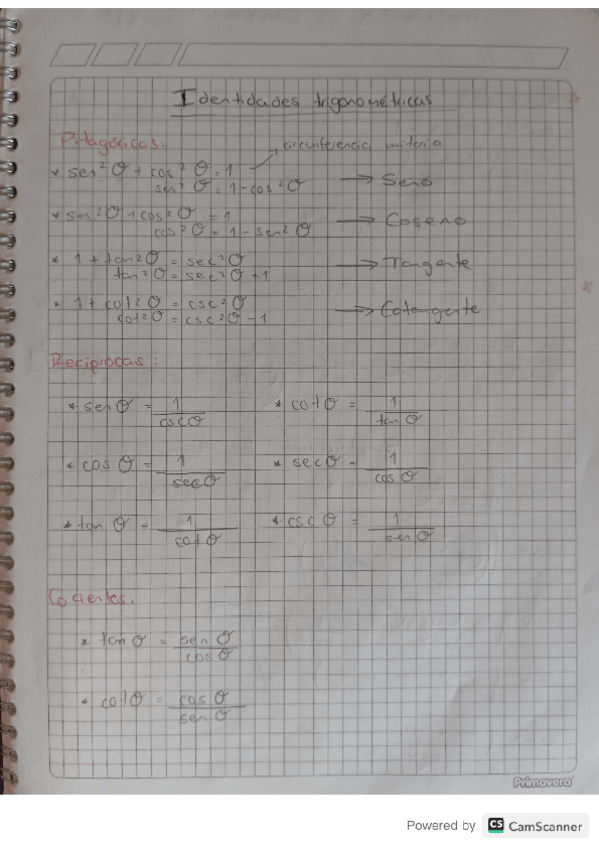 Identidades trigonométricas
Pitagóricas:
circunferencia unitaria
* sen²θ + cos²θ = 1
sen²θ = 1 - cos²θ → Seno
* sen²θ + cos²θ = 1
cos²θ = 1 - sen²θ → Coseno
* 1 + tan²θ = sec²θ
tan²θ = sec²θ - 1 → Tangente
* 1 + cot²θ = csc²θ
cot²θ = csc²θ - 1 → Cotangente
Recíprocas:
* senθ = 1/cscθ * cotθ = 1/tanθ
* cosθ = 1/secθ * secθ = 1/cosθ
* tanθ = 1/cotθ * cscθ = 1/senθ
Cocientes.
* tanθ = senθ/cosθ
* cotθ = cosθ/senθ
Primavera
Powered by CS CamScanner